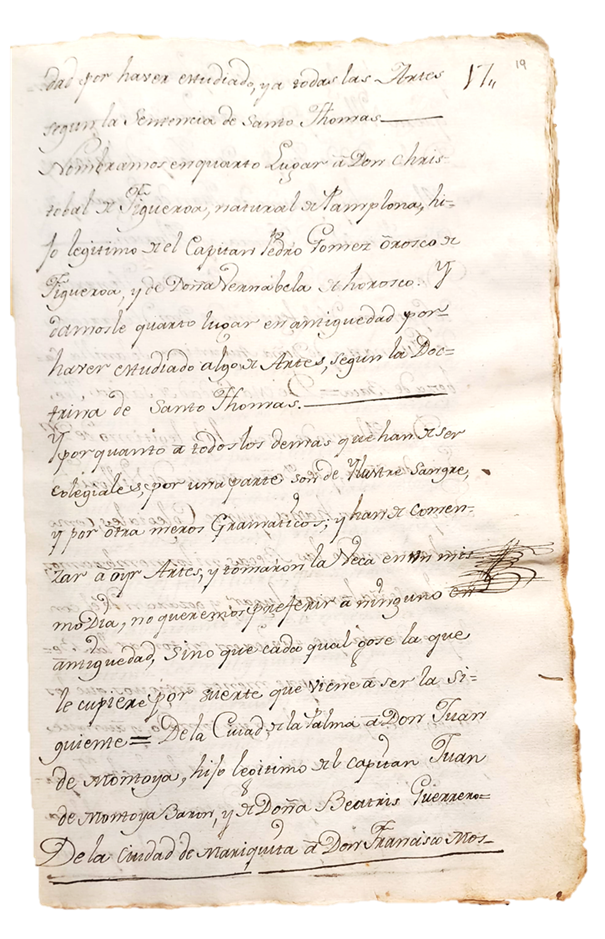 19
dad por haver estudiado, ya todas las Artes 17,,
segun la Sentencia de Santo Thomas
Nombramos enquarto Lugar â Don Chris-
tobal de Figueroa, natural de Pamplona, hi-
jo legitimo de el Capitan Pedro Gomez ôrosco de
Figueroa, y de Doña Vernabela de horosco. Y
damosle quarto lugar en antiguedad por-
haver estudiado algo de Artes, segun la Doc=
trina de Santo Thomas.
Y porquanto a todos los demas que han de ser
colegiales, por una parte son de Ylustre Sangre,
y por otra meros Gramaticos; y han de comen-
zar a oyr Artes, y tomaron la Veca en un mis-
mo Dia, no queremos preferir a ninguno en
antiguedad, Sino que cada qual gose la que
le cupiere por suerte que viene â ser la si-
guiente = De la Ciuad, de la Palma â Don Juan
de Montoya, hijo legitimo de el Capitan Juan
de Montoya, y de Doña Beatris Guerrero=
De la Ciudad de Mariquita â Don Francisco Mos-